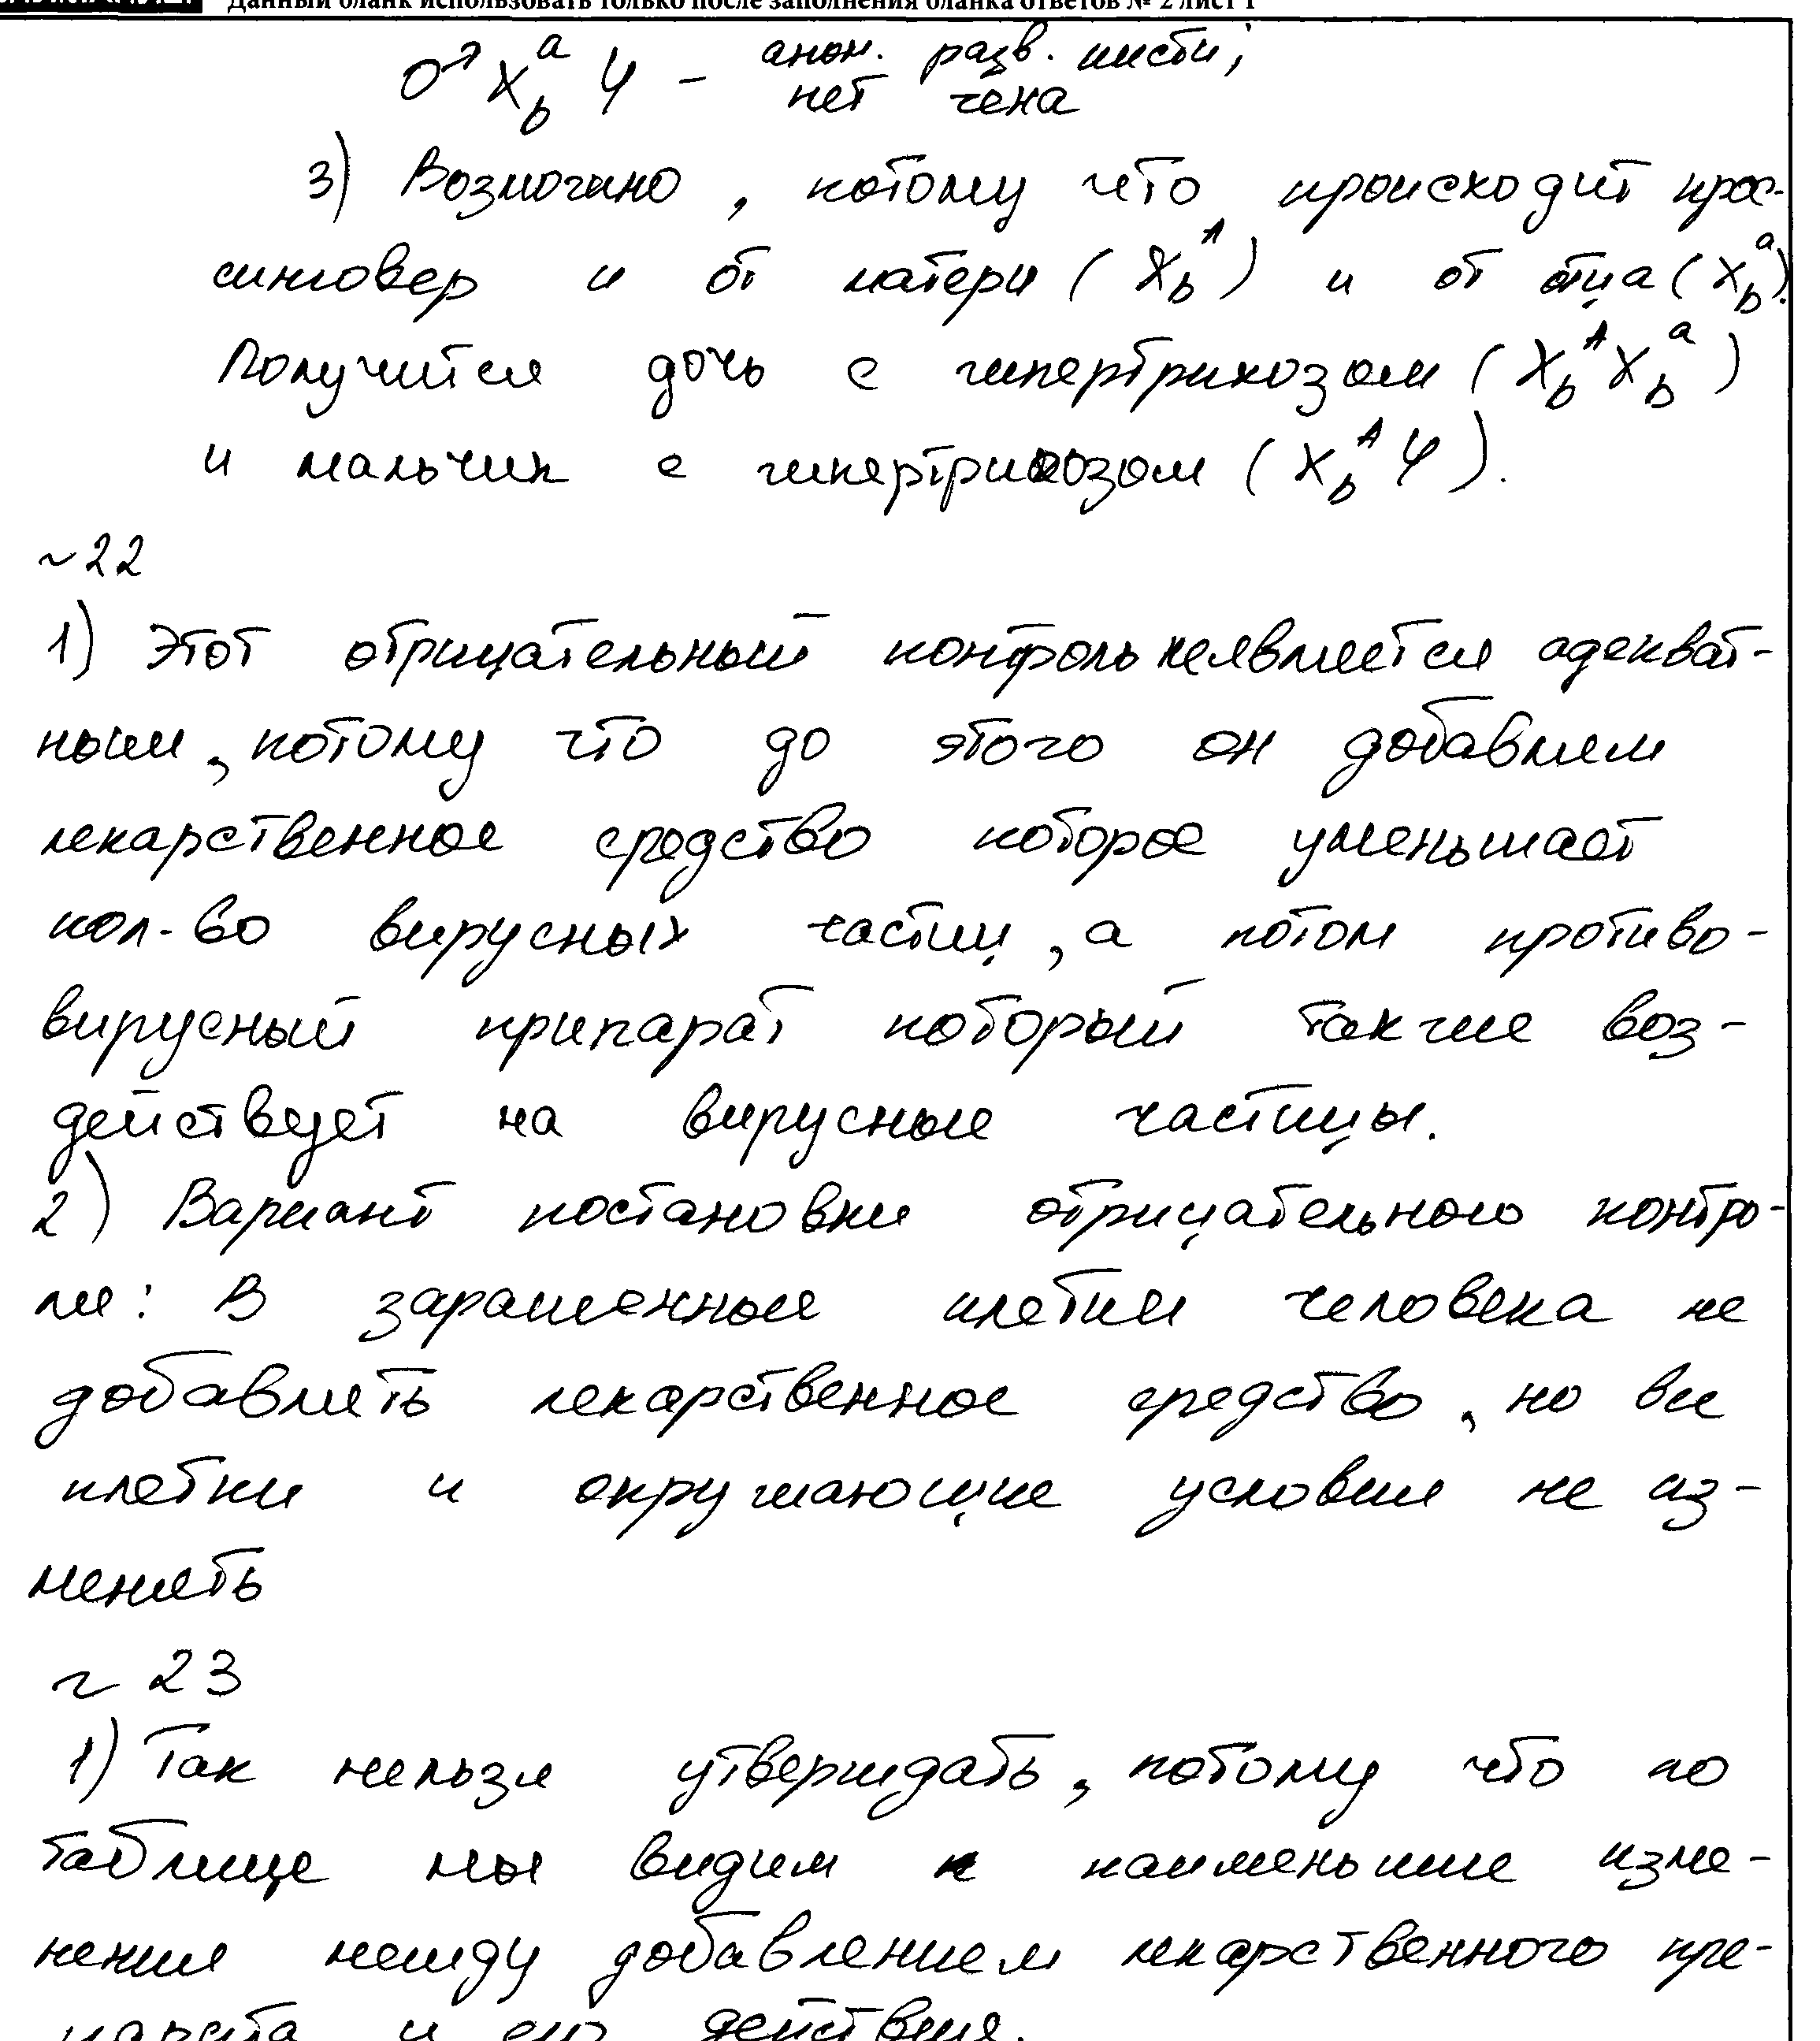 Данный бланк использовать только после заполнения бланка ответов № 2 лист 1
♂ X_b^a Y – аном. разв. кисти;
нет гена
3) Возможно, потому что происходит крос-
синговер и от матери (X_b^A) и от отца (X_b^a).
Получится дочь с гипертрихозом (X_b^A X_b^a)
и мальчик с гипертрихозом (X_b^A Y).
~22
1) Этот отрицательный контроль неявляется адекват-
ным, потому что до этого он добавлял
лекарственное средство которое уменьшает
кол-во вирусных частиц, а потом противо-
вирусный припарат который также воз-
действует на вирусные частицы.
2) Вариант постановки отрицательного контро-
ля: В зараженные клетки человека не
добавлять лекарственное средство, но все
клетки и окружающие условия не из-
менять
~ 23
1) Так нельзя утверждать, потому что по
таблице мы видим наименьшие изме-
нения между добавлением лекарственного пре-
парата и его действия.